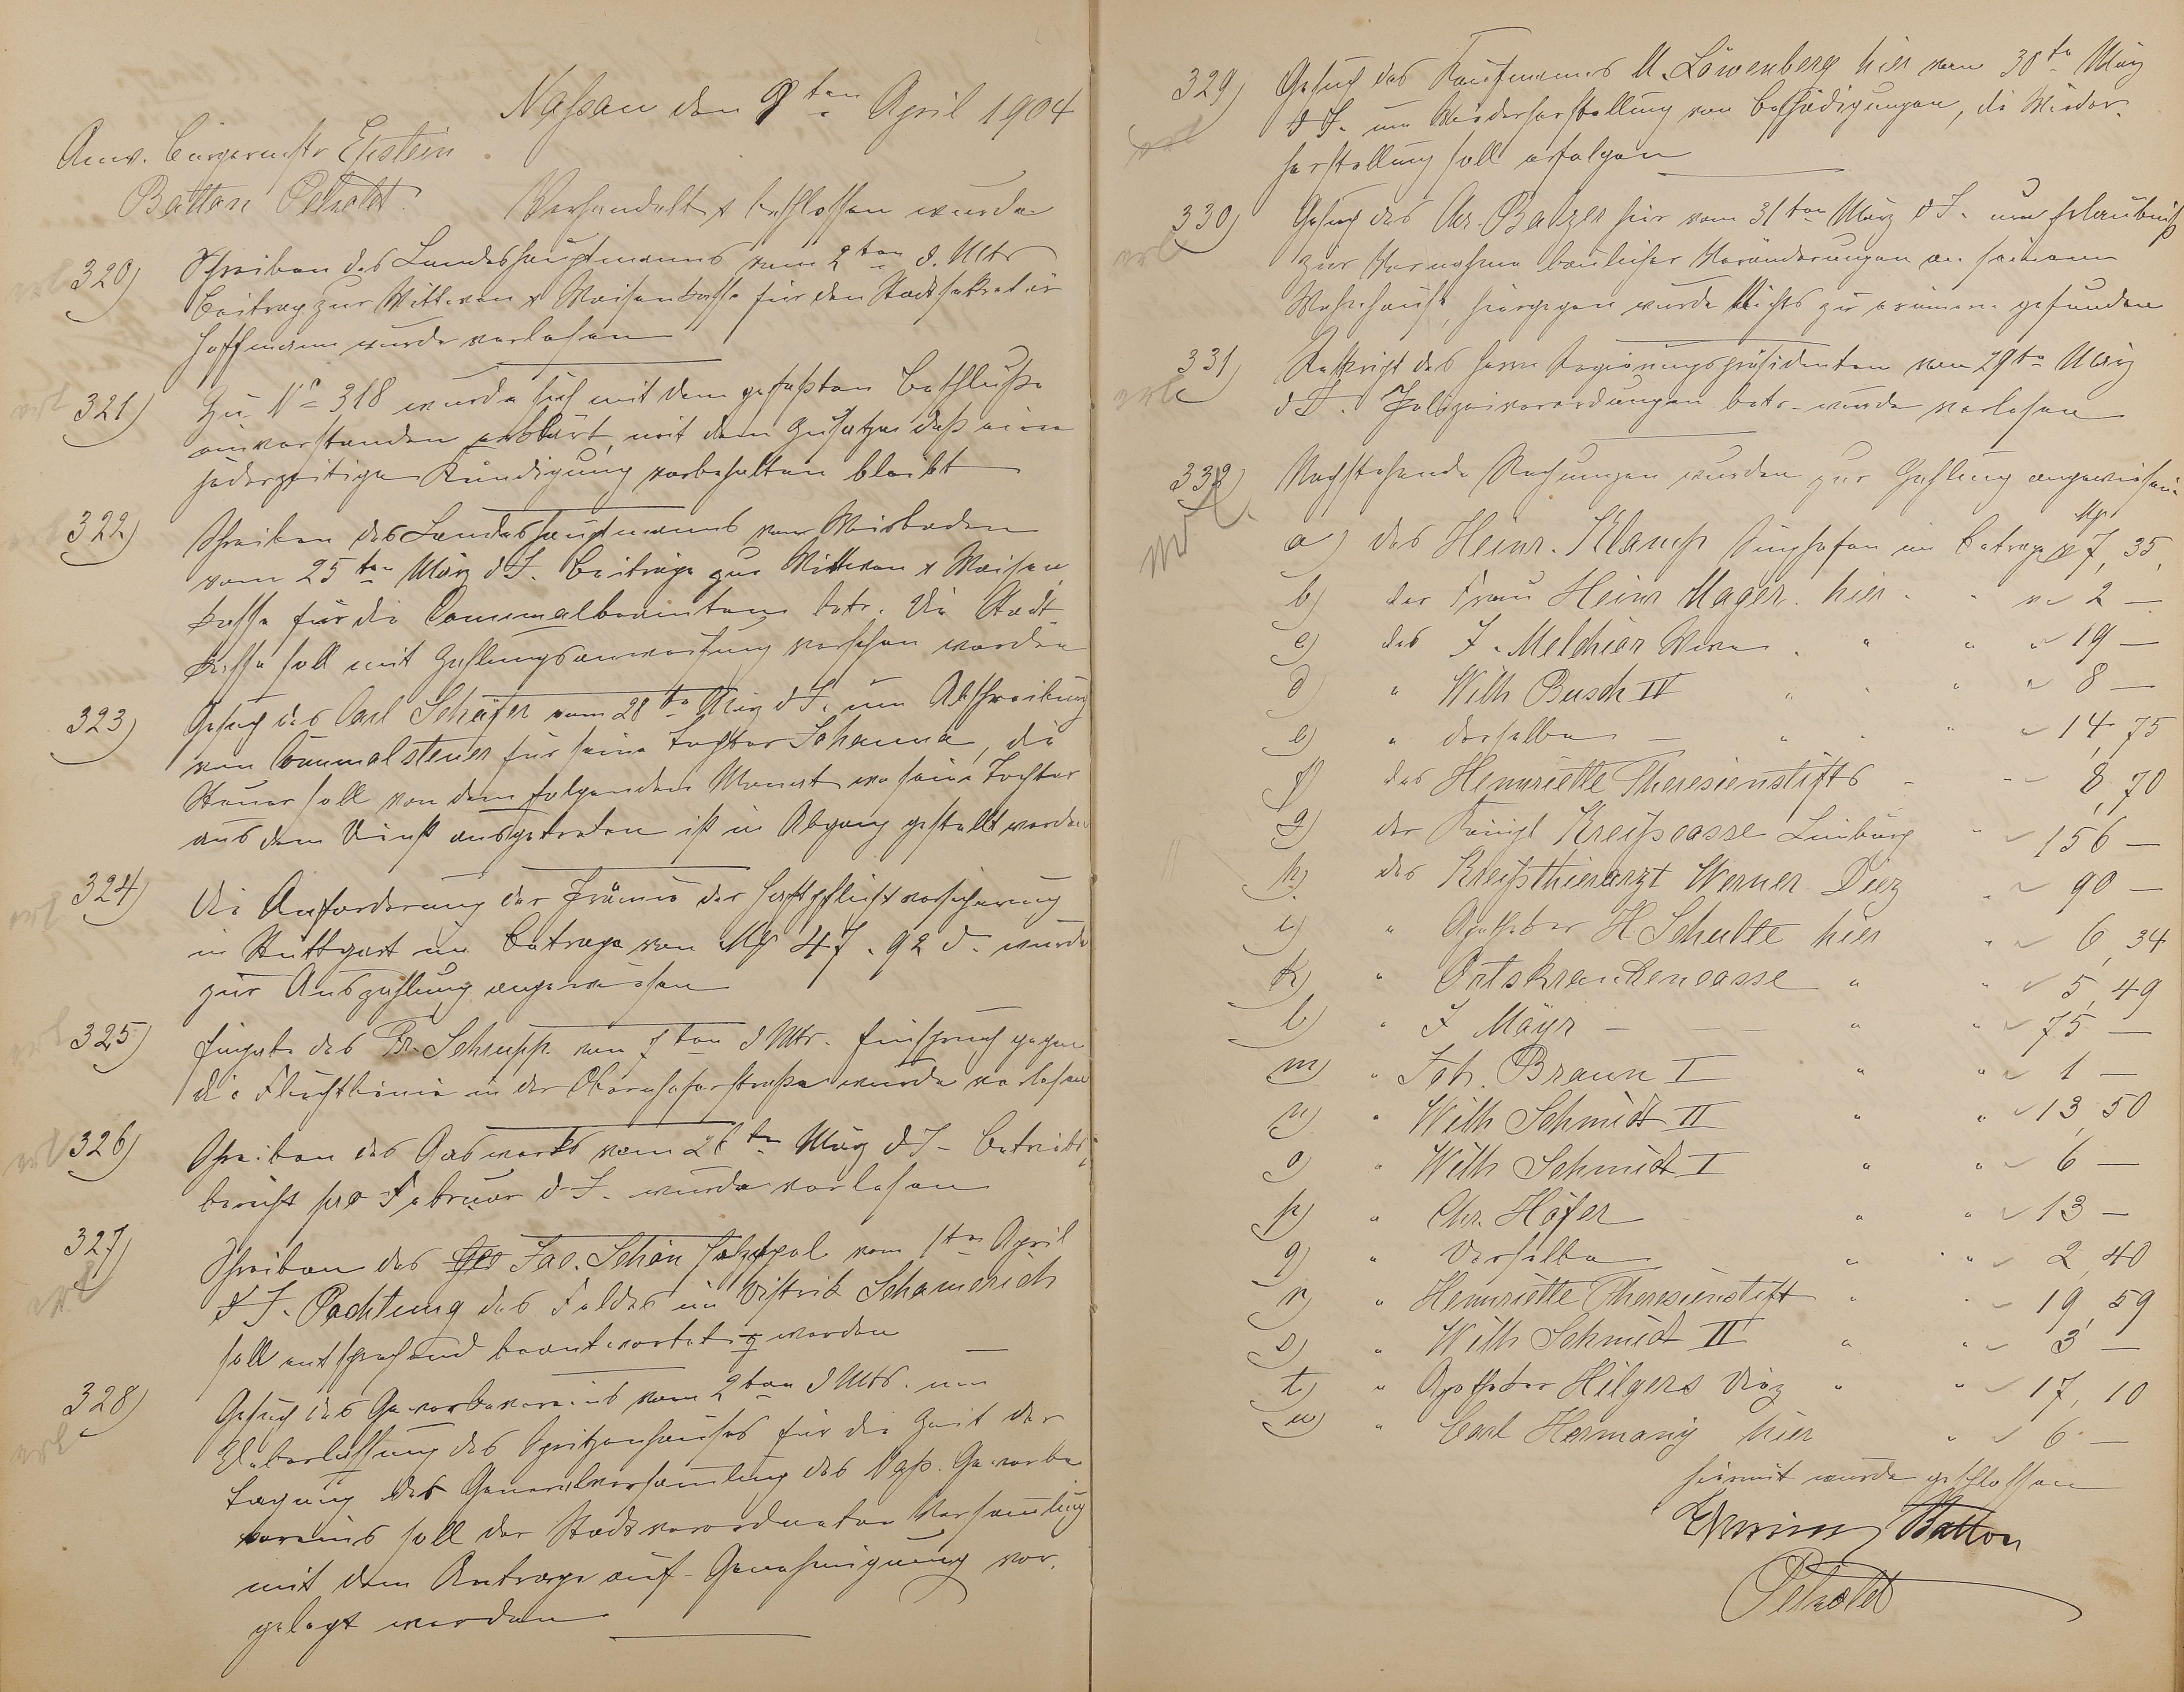 Naßau den 9ten April 1904
Anw. Bürgermstr Epstein
Batton Petzoldt.
Verhandelt & beschlossen wurde
320) Schreiben des Landeshauptmanns vom 2ten d. Mts
Beitrag zur Wittwen & Waisenkasse für den Stadtsekretär
Hoffmann wurde verlesen
321) Zu No 318 wurde sich mit dem gefaßten Beschluße
einverstanden erklärt mit dem Zusatze daß eine
jederzeitige Kündigung vorbehalten bleibt
322) Schreiben des Landeshauptmanns von Wiesbaden
vom 25ten März d J. Beiträge zur Wittwen & Waisen
kasse für die Communalbeamten betr. Die Stadt
kasse soll mit Zahlungsanweisung versehen werden
323) Gesuch des Carl Schäfer vom 28ten März d J. um Abschreibung
von Communalsteuer für seine Tochter Johanna, die
Steuer soll von dem folgenden Monat wo seine Tochter
aus dem Dienst ausgetreten ist in Abgang gestellt werden
324) Die Anforderung der Prämie der Haftpflichtversicherung
in Stuttgart im Betrage von Mk 47.92 d. wurde
zur Auszahlung angewiesen
325) Eingabe des Pr. Schrupp vom 7ten d Mts. Einspruch gegen
die Fluchtlinie in der Obernhoferstraße wurde verlesen
326) Schreiben des Gaswerks vom 26ten März d J. Betriebs
bericht pro Februar d J. wurde verlesen
327) Schreiben des Jac. Schön vom 1ten April
d J. Pachtung des Feldes im Distrikt Schamerich
soll entsprechend beantwortet werden
328) Gesuch des Gewerbevereins vom 2ten d Mts. um
Ueberlassung des Spritzenhauses für die Zeit der
Tagung der Generalversamlung des Naß. Gewerbe
vereins soll der Stadtverordneten Versamlung
mit dem Antrage auf Genehmigung vor.
gelegt werden
329) Gesuch des Kaufmannes M. Löwenberg hier vom 30ten März
d J. um Wiederherstellung von Beschädigungen, die Wieder.
herstellung soll erfolgen
330) Gesuch des Chr. Balzer hier vom 31ten März d J. um Erlaubniß
zur Vornahme baulicher Veränderungen an seinem
Wohnhause, hiergegen wurde Nichts zu erinnern gefunden
331) Reskript des Herrn Regierungspräsidenten vom 29ten März
d J. Polizeiverordnungen betr. wurde verlesen
332) Nachstehende Rechnungen wurden zur Zahlung angewiesen
a) des Heinr. Klamp Singhofen im Betrage v Mk 7,35
b) der Frau Heinr Mager. hier " " 2 —
c) des J. Melchior Wwe " " " 19 —
d) " Wilh Busch IV " " " 8 —
e) " derselbe — " " " 14,75
f) des Henriette Theresienstifts - " 8,70
g) der Königl Kreißcasse Limburg " " 156 —
h) des Kreißthierarzt Werner Diez " " 90 —
i) " Apotheker H. Schulte hier " " 6,34
k) " Ortskrankencasse " " " 5,49
l) " J Mäyr — " " " 75 —
m) " Joh. Braun I " " " 1 —
n) " Wilh Schmidt II " " " 13,50
o) " Wilh Schmidt I " " " 6 —
p) " Chr. Höfer " " " 13 —
q) " Derselbe " " " 2,40
r) " Henriette Theresienstift " " " 19,59
s) " Wilh Schmidt II " " " 3 —
t) " Apotheker Hilgers Diez " " " 17,10
u) " Carl Hermany hier " " 6 —
hiermit wurde geschlossen
Batton
Petzoldt